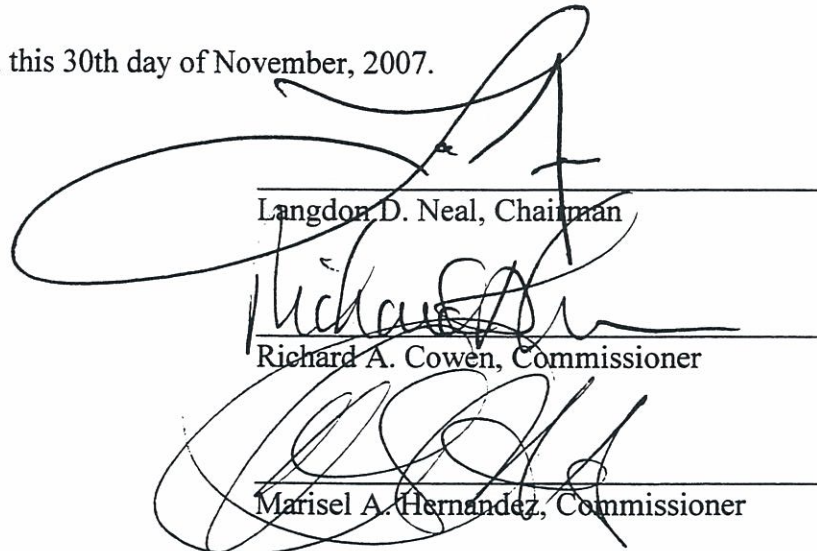 this 30th day of November, 2007.
Langdon D. Neal, Chairman
Richard A. Cowen, Commissioner
Marisel A. Hernandez, Commissioner